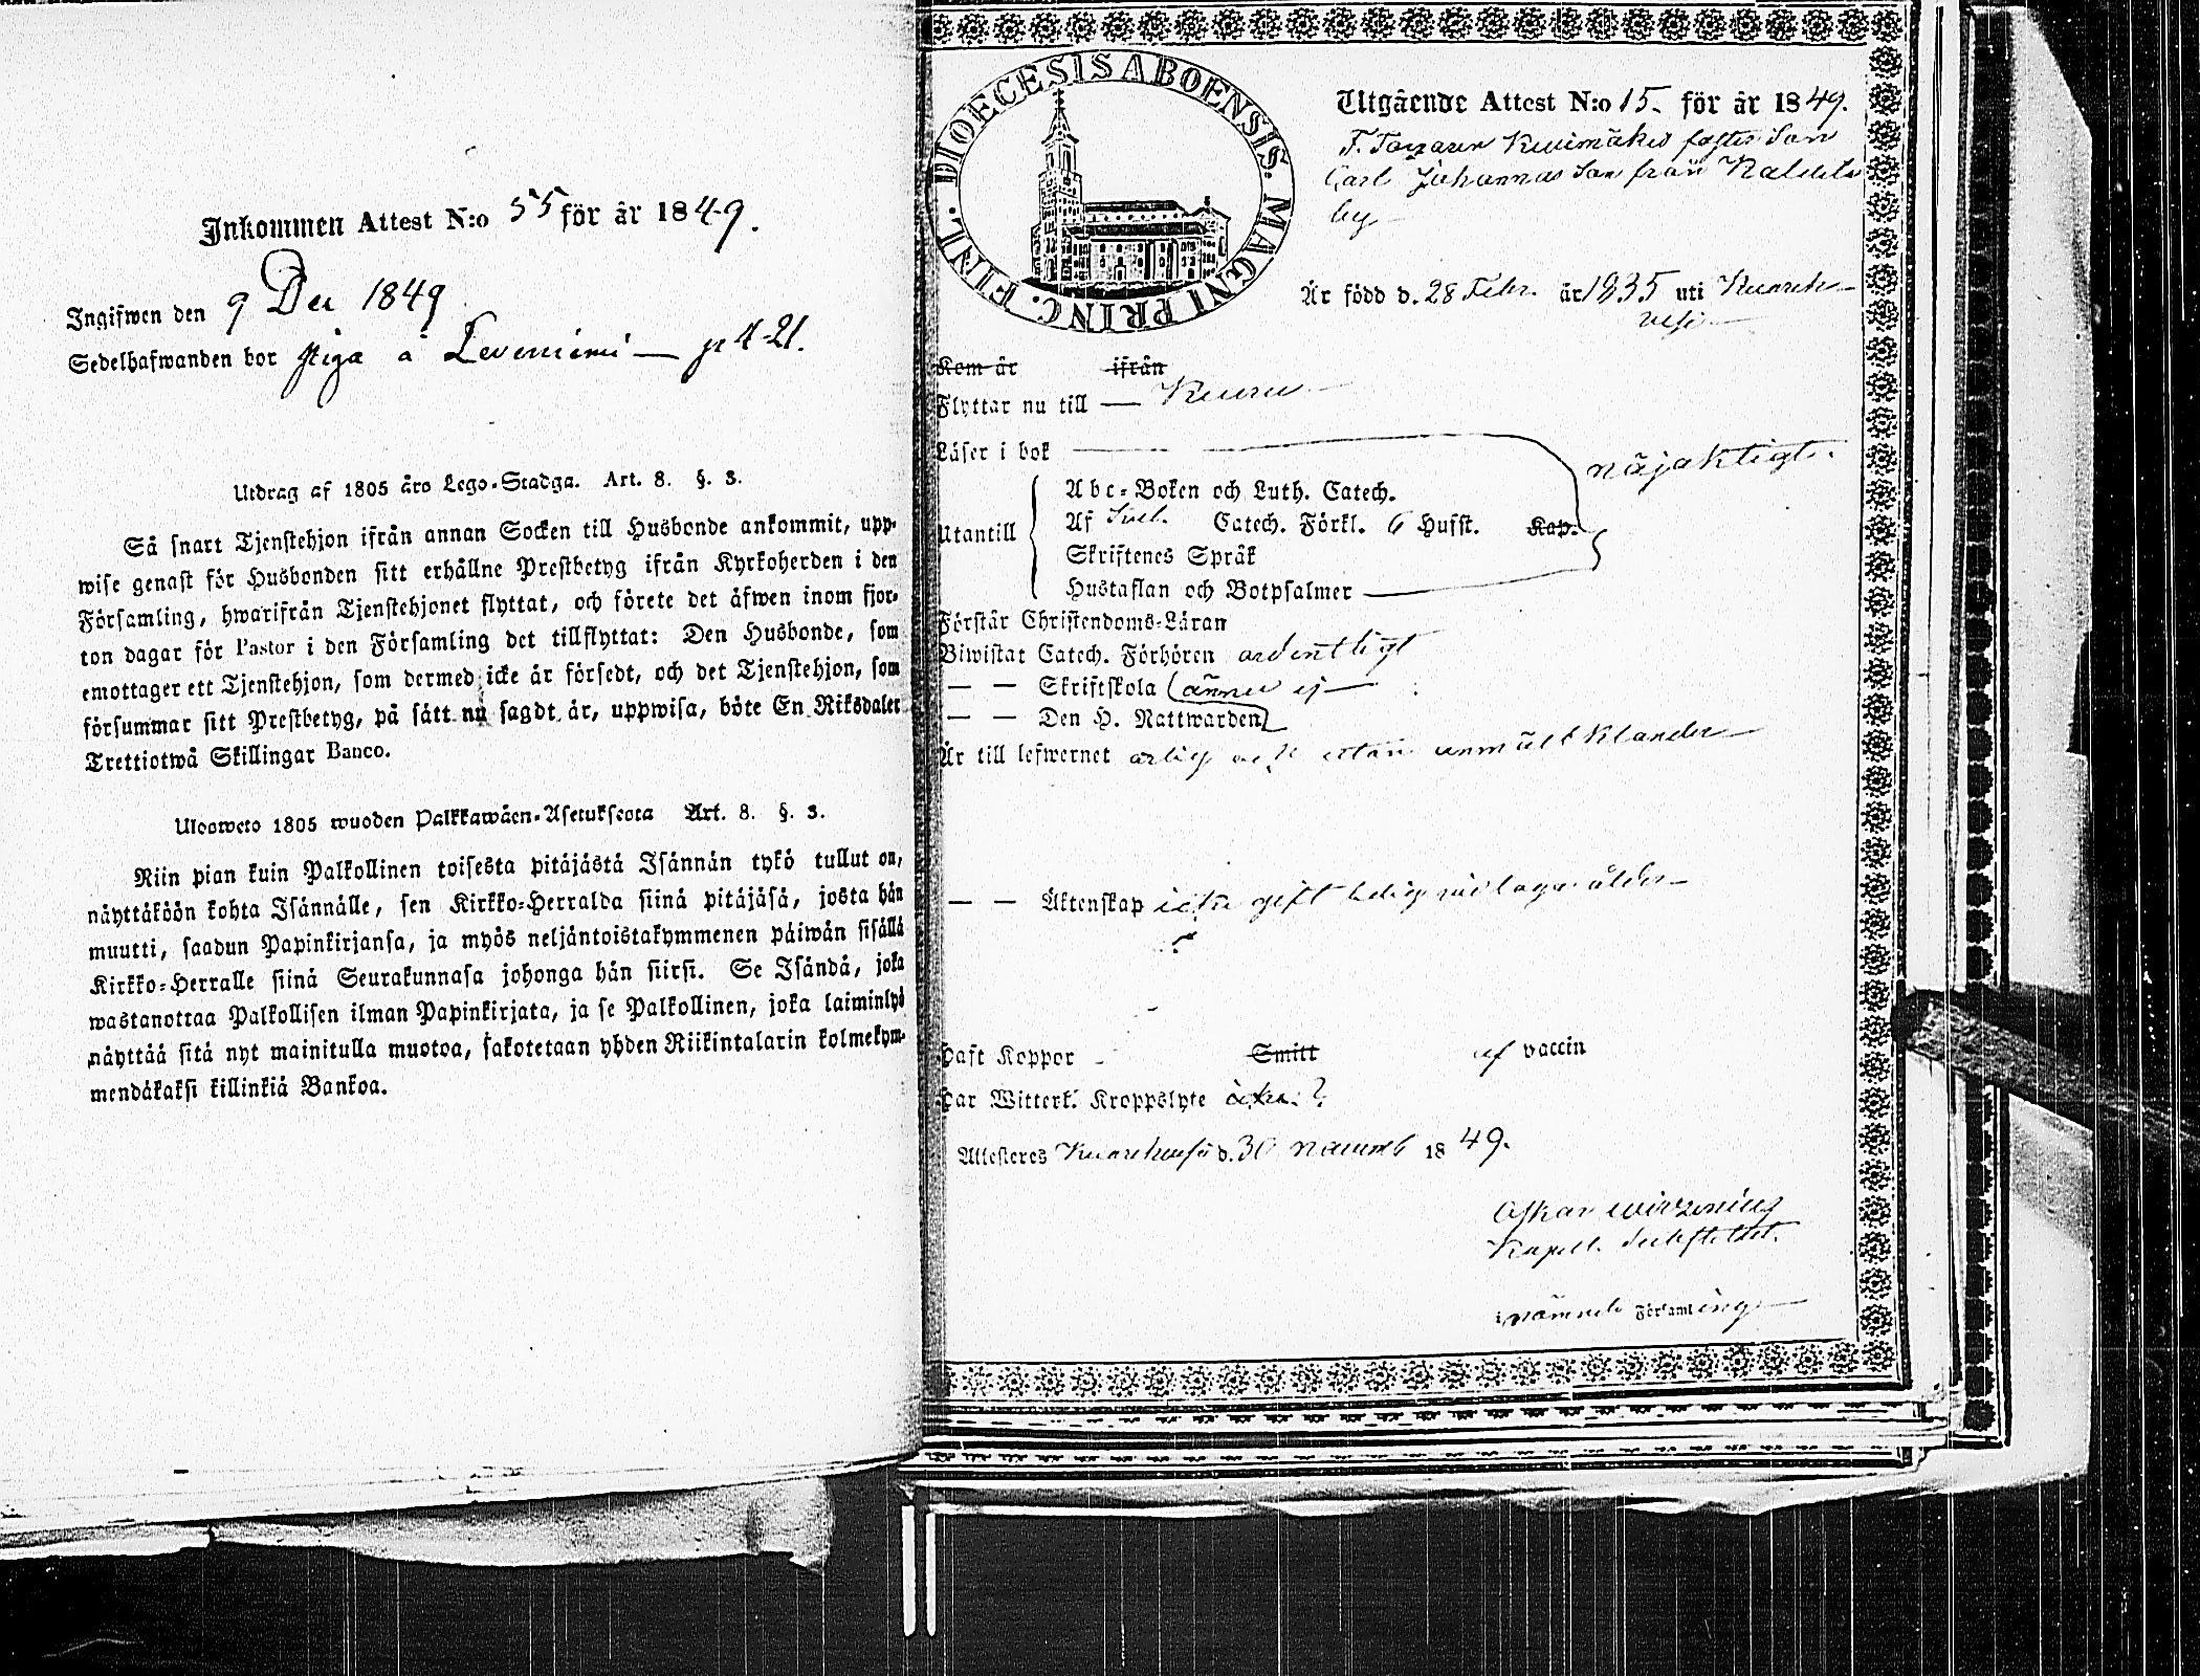 Inkommen Attest N:o 55 för år 1849.
Ingifwen den 9 Dec 1849
Sedelhafwanden bor piga å Leveniemi — p 421.
Utdrag af 1805 års Lego-Stadga. Art. 8. §. 3.
Så snart Tjenstehjon ifrån annan Socken till Husbonde ankommit, upp-
wise genast för Husbonden sitt erhållne Prestbetyg ifrån Kyrkoherden i den
Församling, hwarifrån Tjenstehjonet flyttat, och förete det äfwen inom fjor-
ton dagar för Pastor i den Församling det tillflyttat: Den Husbonde, som
emottager ett Tjenstehjon, som dermed icke är försedt, och det Tjenstehjon, som
försummar sitt Prestbetyg, på sätt nu sagdt är, uppwisa, böte En Riksdaler
Trettiotwå Skillingar Banco.
Ulosweto 1805 wuoden Palkkawäen-Asetuksesta Art. 8. §. 3.
Niin pian kuin Palkollinen toisesta pitäjästä Isännän tykö tullut on,
näyttäköön kohta Isännälle, sen Kirkko-Herralda siinä pitäjäsä, josta hän
muutti, saadun Papinkirjansa, ja myös neljäntoistakymmenen päiwän sisällä
Kirkko-Herralle siinä Seurakunnasa johonga hän siirsi. Se Isändä, joka
wastanottaa Palkollisen ilman Papinkirjata, ja se Palkollinen, joka laiminlyö
näyttää sitä nyt mainitulla muotoa, sakotetaan yhden Riikintalarin kolmekym-
mendäkaksi killinkiä Bankoa.
DIOECESIS ABOENSIS. MAGNI PRINC. FINL.
Utgående Attest N:o 15. för år 1849.
foster Son
Carl Johannes Son från
by
Är född d. 28 Febr. år 1835 uti Kuoreh-
vesi
Kom år ifrån
Flyttar nu till — Kuru
Läser i bok nöjaktigt.
Abc-Boken och Luth. Catech.
Utantill Af Svebel. Catech. Förkl. 6 Hufst. Kap.
Skriftenes Språk
Hustaflan och Botpsalmer
Förstår Christendoms-Läran
Biwistat Catech. Förhören ordentligt
— — Skriftskola ännu ej
— — Den H. Nattwarden
Är till lefwernet ärlig och utan anmält klander
— — Äktenskap icke gift ledig vid laga ålder
Haft Koppor Smitt af vaccin
Har Witterl. Kroppslyte icke.
Attesteres Kuorehvesi d. 30 Novemb 1849.
Oskar Wirzenius
Kapell. Substitut.
i nämnde Församling